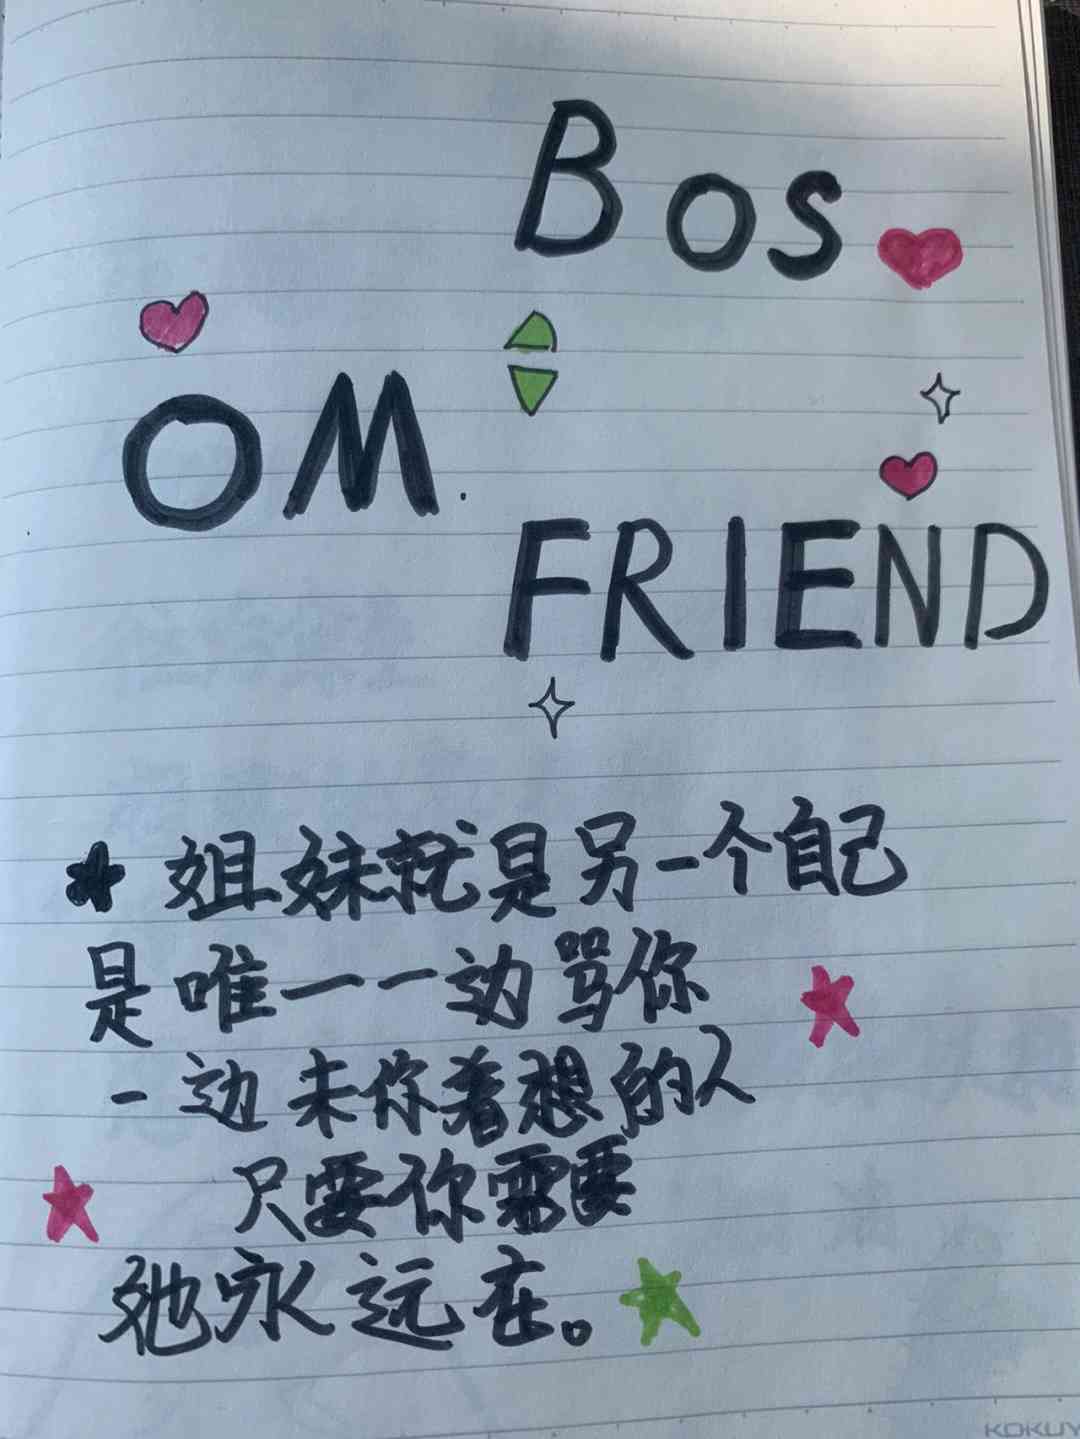 Bos
OM.
FRIEND
姐妹就是另一个自己
是唯一一边骂你
一边未你着想的人
只要你需要
她永远在。
KOKUY